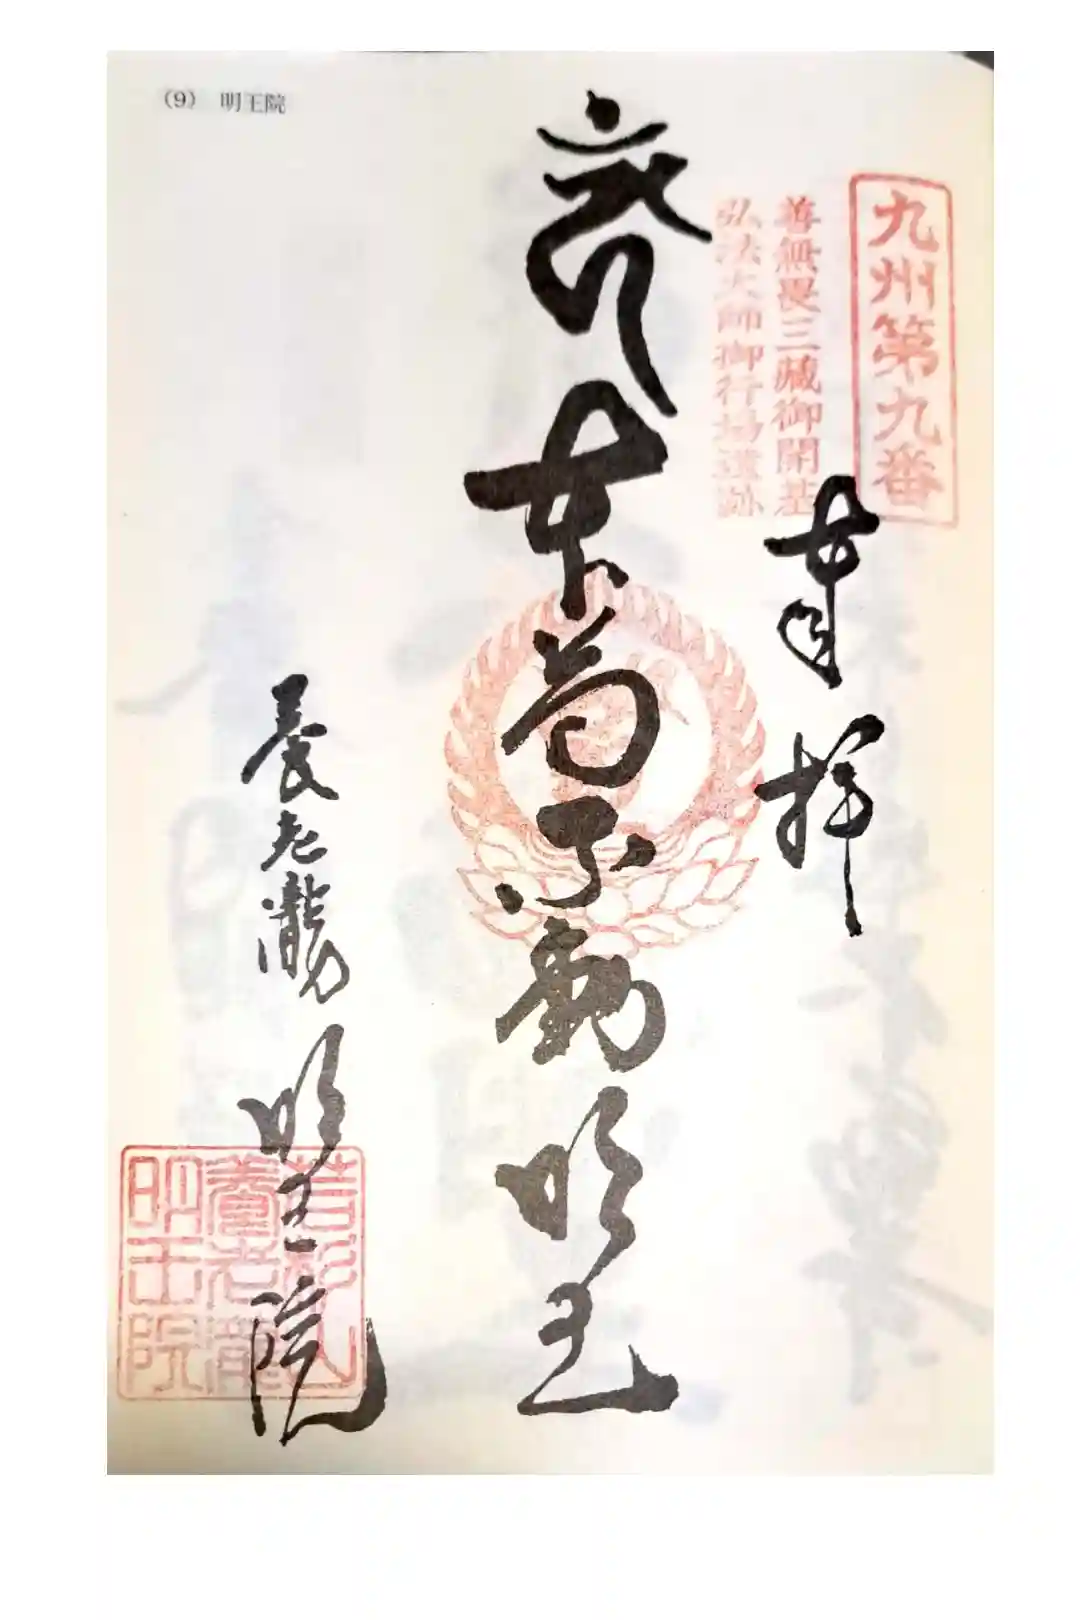 (9) 明王院
九州第九番
善無畏三藏御開基
弘法大師御行場遺跡
奉拝
本尊不動明王
養老瀧
明王院
養老瀧
明王院